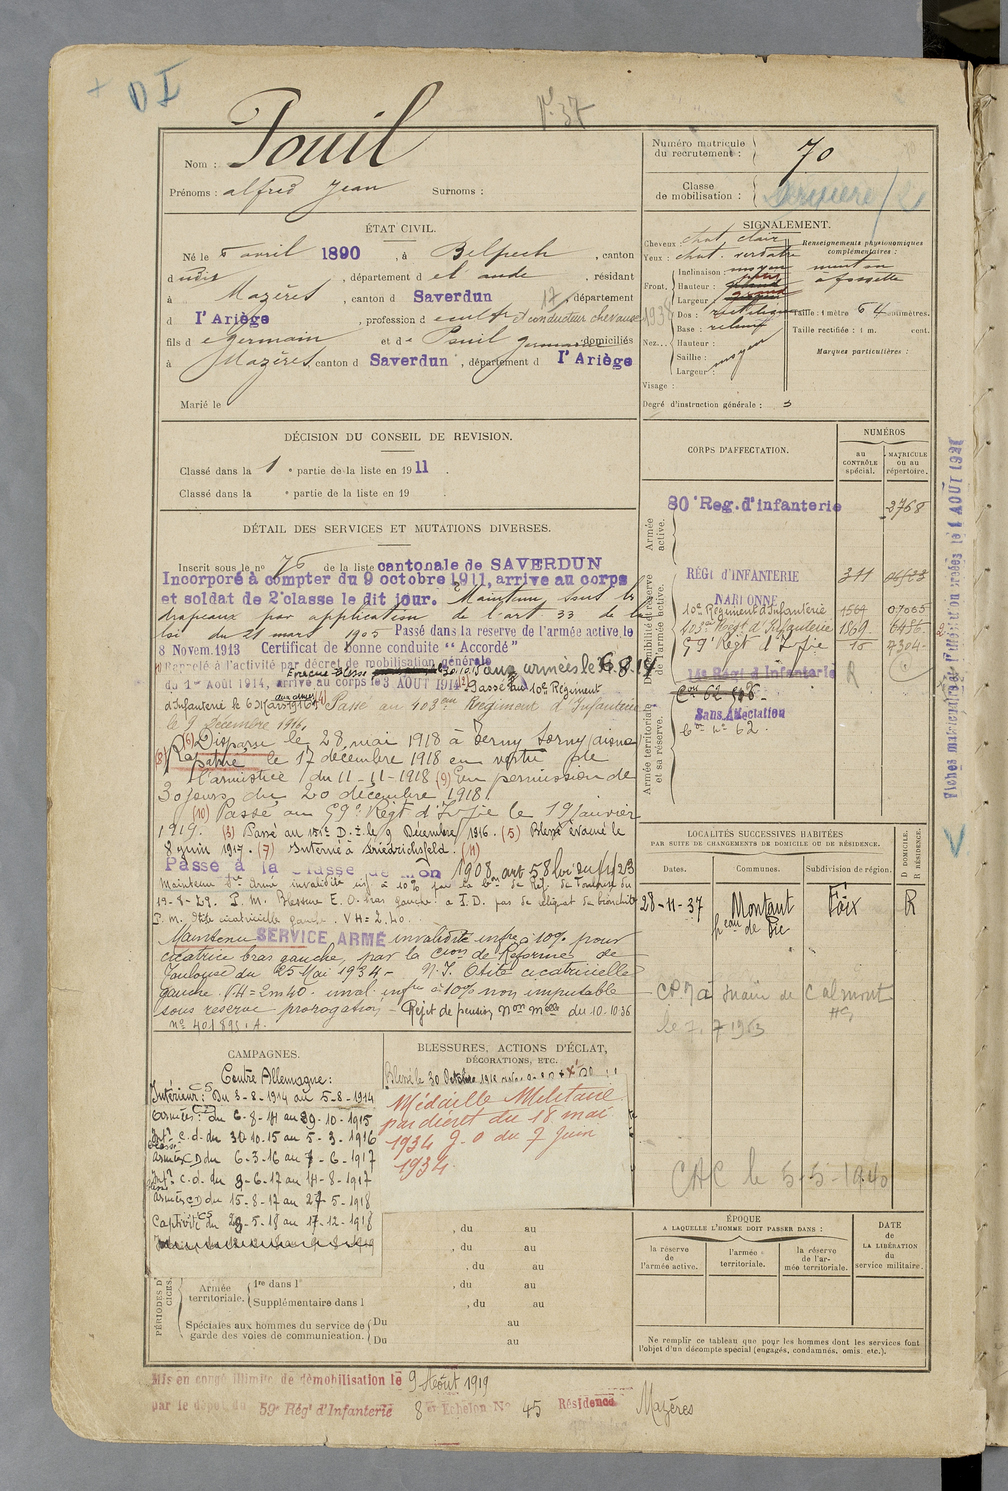 D I
P. 37
Nom : Pouil
Prénoms : alfred Jean Surnoms :
Numéro matricule du recrutement : 70
Classe de mobilisation :
ÉTAT CIVIL.
Né le 5 avril 1890, à Belpech, canton
dudit, département de l'aude, résidant
à Mazères, canton d Saverdun, département
d l'Ariège, profession d cult et conducteur chevaux
fils d e germain et d e Pouil germaine domiciliés
à Mazères, canton d Saverdun, département d l'Ariège
Marié le
SIGNALEMENT.
Cheveux : chat. clair
Yeux : chat. verdatre
Front, Inclinaison : moyen
Hauteur :
Largeur :
Nez... Dos : rectiligne
Base : relevé
Hauteur :
Saillie : moyen
Largeur :
Visage :
Degré d'instruction générale : 3
Renseignements physionomiques complémentaires :
menton
à fossette
Taille : 1 mètre 64 centimètres.
Taille rectifiée : 1 m. cent.
Marques particulières :
DÉCISION DU CONSEIL DE REVISION.
Classé dans la 1e partie de la liste en 1911.
Classé dans la e partie de la liste en 19 .
DÉTAIL DES SERVICES ET MUTATIONS DIVERSES.
Inscrit sous le n° 76 de la liste cantonale de SAVERDUN
Incorporé à compter du 9 octobre 1911, arrivé au corps
et soldat de 2e classe le dit jour. Maintenu sous les
drapeaux par application de l'art 33 de la
loi du 21 mars 1905 Passé dans la réserve de l'armée active le
8 Novem. 1913 Certificat de bonne conduite "Accordé"
Rappelé à l'activité par décret de mobilisation générale
du 1er Août 1914, arrivé au corps le 3 AOUT 1914 aux armées le 6.8.14
Evacué Blessé 30.10.15
Passé au 10e Régiment
d'Infanterie le 6 Mars 1916 (4) Passé au 403ème Régiment d'Infanterie
le 9 Décembre 1916.
(6) Disparu le 28 mai 1918 à Terny Sorny (aisne)
(8) Rapatrié le 17 décembre 1918 en vertu de
l'armistice du 11-11-1918 (9) En permission de
30 jours du 20 décembre 1918.
(10) Passé au 59e Régt d'Inftie le 19 Janvier
1919. (3) Passé au 151e D.I. le 9 Décembre 1916. (5) Blessé évacué le
8 juin 1917. (7) Interné à Friedrichsfeld. (11)
Passé à la classe de mon 1908 art 58 loi du 1/4/23
Maintenu Sce Armé invalidité inf. à 10% par la Con de Réf. de Toulouse du
19-8-29. P.M. Blessure E.O. bras gauche. à I.D. pas de reliquat de bronchite
P.M. Otite cicatricielle gauche. VH = 2.40.
Maintenu SERVICE ARMÉ invalidité infre à 10% pour
cicatrice bras gauche, par la Cion de Réforme de
Toulouse du 25 Mai 1934 - N.I. Otite cicatricielle
gauche. VH = 2m40. inval. infre à 10% non imputable
sous réserve prorogation - Rejet de pension Non Melle du 10.10 36
n° 401895.A.
CORPS D'AFFECTATION.
NUMÉROS
au CONTRÔLE spécial.
MATRICULE ou au répertoire.
Armée active.
80e Reg. d'infanterie 2768
Disponibilité et réserve de l'armée active.
RÉGt d'INFANTERIE 311
NARBONNE
10e Régiment d'Infanterie 1564 07065
403e Régt d'Infanterie 1869 6486
59e Régt d'Inftie 15 4304
14e Régt d'Infanterie R
Armée territoriale et sa réserve.
Sans Affectation
Con n° 62.
Fiches matriculaires d'Substitution créées le 1 AOUT 19
LOCALITÉS SUCCESSIVES HABITÉES
PAR SUITE DE CHANGEMENTS DE DOMICILE OU DE RÉSIDENCE.
Dates. Communes. Subdivision de région. D DOMICILE. R RÉSIDENCE.
28-11-37 Montaut Foix R
CP.M à maire de Calmont
le 7.7 1953
CAC le 5-5-1940
CAMPAGNES.
Contre Allemagne :
Intérieur : CS Du 3-8-1914 au 5-8-1914
Armées : CD du 6-8-14 au 29-10-1915
Intr c.d. du 30-10-15 au 5-3-1916
Armées CD du 6-3-16 au 7-6-1917
Intr c.d. du 8-6-17 au 14-8-1917
Armées CD du 15-8-17 au 27-5-1918
Captivité CS du 28-5-18 au 17-12-1918
BLESSURES, ACTIONS D'ÉCLAT,
DÉCORATIONS, ETC.
Blessé le 30 Octobre 1915
Médaille Militaire
par décret du 18 mai
1934 J.O du 7 Juin
1934.
, du au
, du au
, du au
PÉRIODES D'EXERCICES.
Armée territoriale. 1re dans l' , du au
Supplémentaire dans l , du au
Spéciales aux hommes du service de garde des voies de communication. Du au
Du au
ÉPOQUE
A LAQUELLE L'HOMME DOIT PASSER DANS :
la réserve de l'armée active.
l'armée territoriale.
la réserve de l'armée territoriale.
DATE de LA LIBÉRATION du service militaire.
Ne remplir ce tableau que pour les hommes dont les services font
l'objet d'un décompte spécial (engagés, condamnés, omis, etc.).
Mis en congé illimité de démobilisation le 9 Août 1919
par le dépôt du 59e Régt d'Infanterie 8e Echelon N° 45 Résidence Mazères